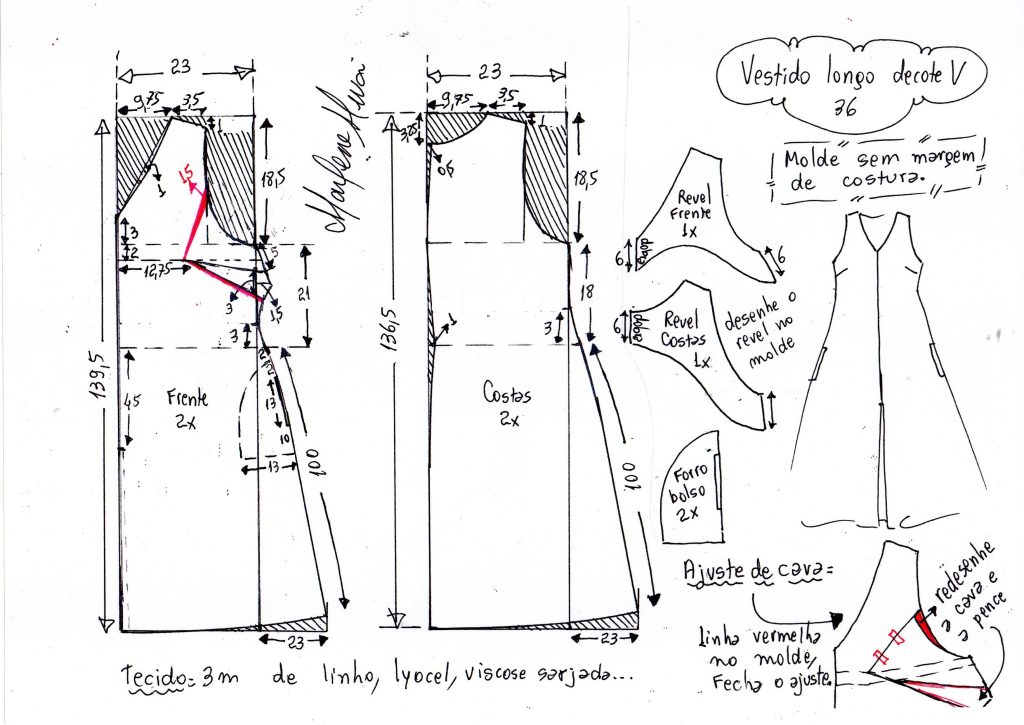 Vestido longo decote V
36
Molde sem margem
de costura.
Marlene Mukai
23
9,75
3,5
1
1,5
1
18,5
3
2
12,75
,5
3
1,5
21
3
2
2
139,5
45
Frente
2x
13
10
13
100
23
23
9,75
3,5
1
3,75
0,5
18,5
18
3
1
136,5
Costas
2x
100
23
Revel
Frente
1x
dobra
6
6
Revel
Costas
1x
dobra
6
desenhe o
revel no
molde
Forro
bolso
2x
Ajuste de cava=
linha vermelha
no molde,
Fecha o ajuste.
redesenhe
a cava e
a pence
Tecido= 3m de linho, lyocel, viscose sarjada...